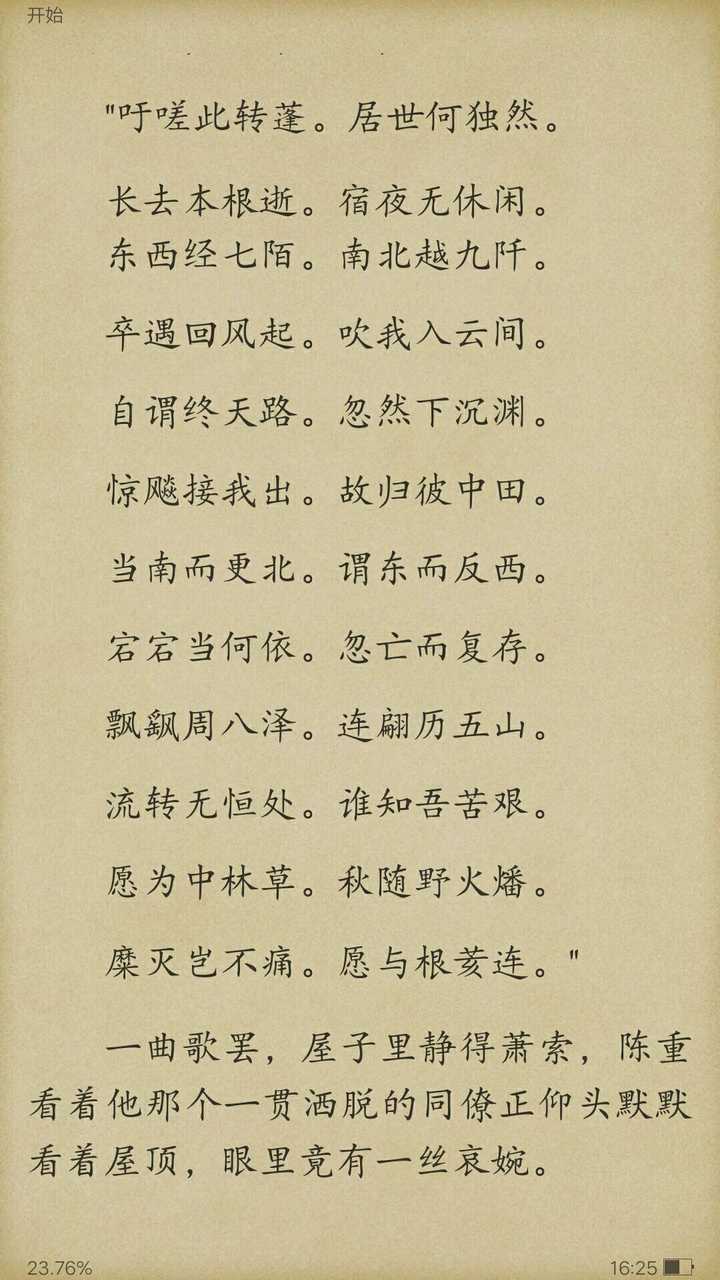 开始
"吁嗟此转蓬。居世何独然。
长去本根逝。宿夜无休闲。
东西经七陌。南北越九阡。
卒遇回风起。吹我入云间。
自谓终天路。忽然下沉渊。
惊飚接我出。故归彼中田。
当南而更北。谓东而反西。
宕宕当何依。忽亡而复存。
飘飖周八泽。连翩历五山。
流转无恒处。谁知吾苦艰。
愿为中林草。秋随野火燔。
糜灭岂不痛。愿与根荄连。"
一曲歌罢，屋子里静得萧索，陈重
看着他那个一贯洒脱的同僚正仰头默默
看着屋顶，眼里竟有一丝哀婉。
23.76% 16:25